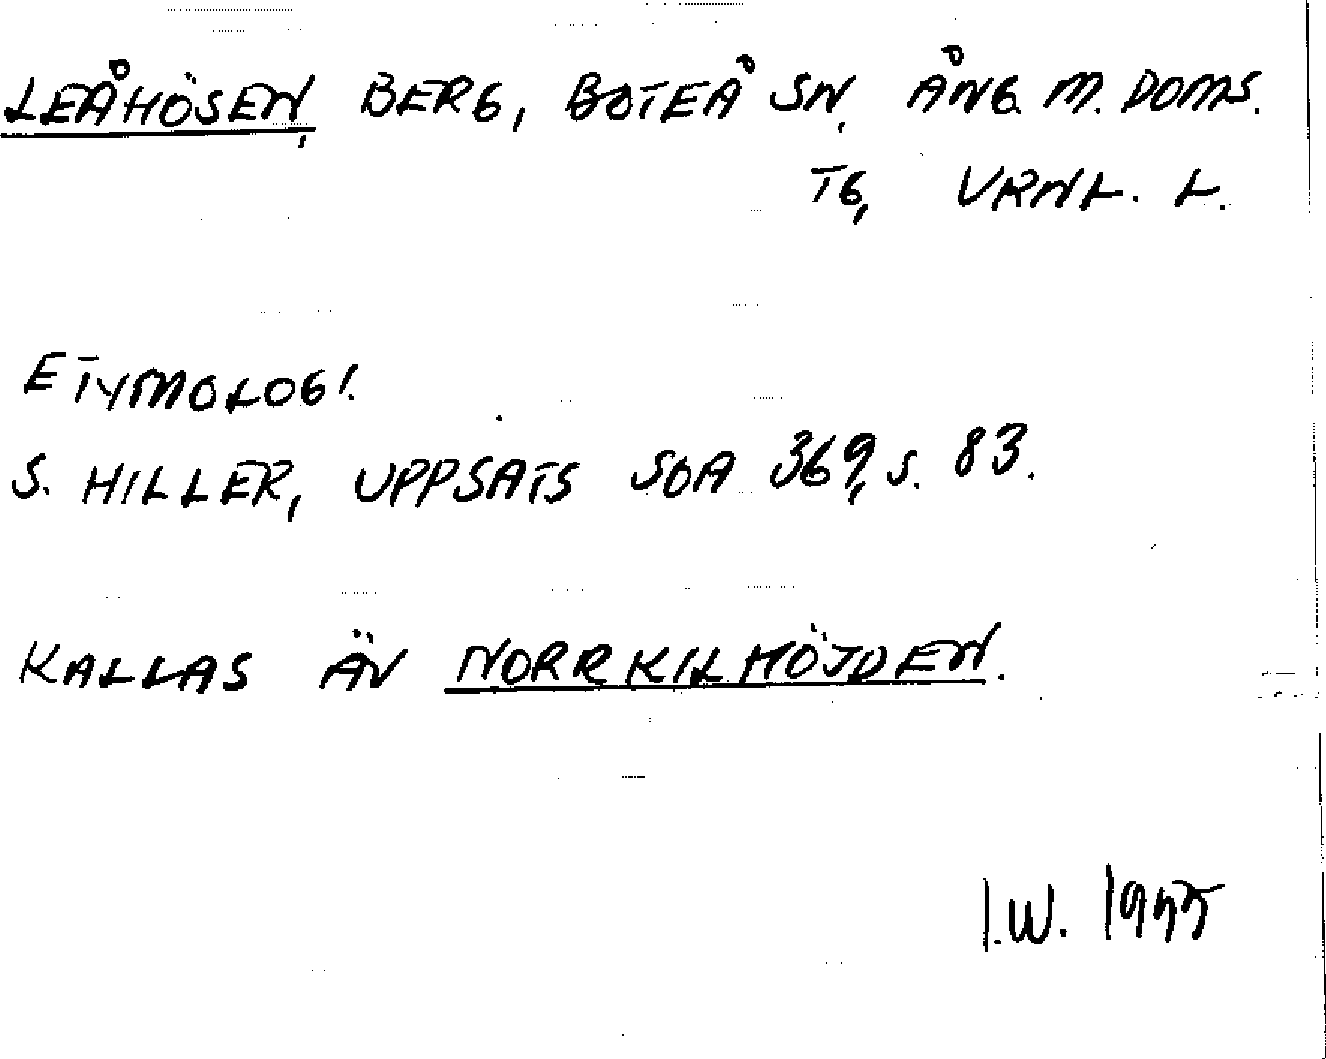 LEÅHÖSEN, BERG, BOTEÅ SN, ÅNG. M. DOMS.
TG, VRNL. L.
ETYMOLOGI.
S. HILLER, UPPSATS SOA 369, S. 83.
KALLAS ÄV NORRKILHÖJDEN.
I.W. 1977